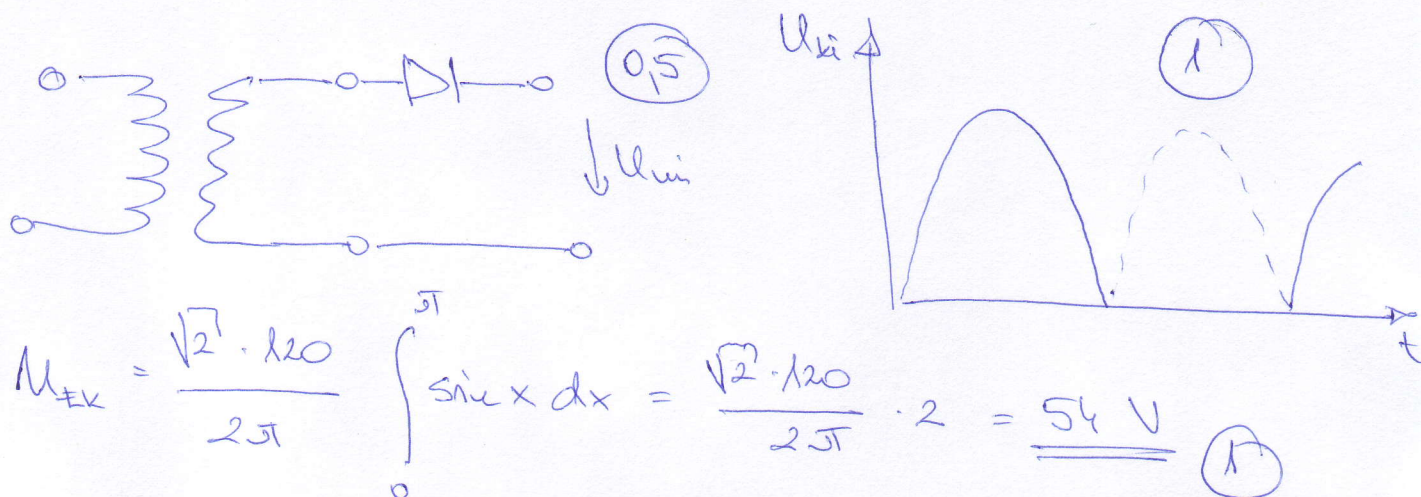 0,5
U_ki
1
U_ki
t
U_EK = √2 · 120 / 2π ∫₀^π sin x dx = √2 · 120 / 2π · 2 = 54 V
1